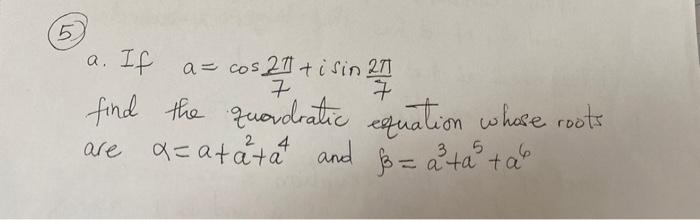 5
a. If a = cos 2π/7 + i sin 2π/7
find the quadratic equation whose roots
are α = a + a² + a⁴ and β = a³ + a⁵ + a⁶